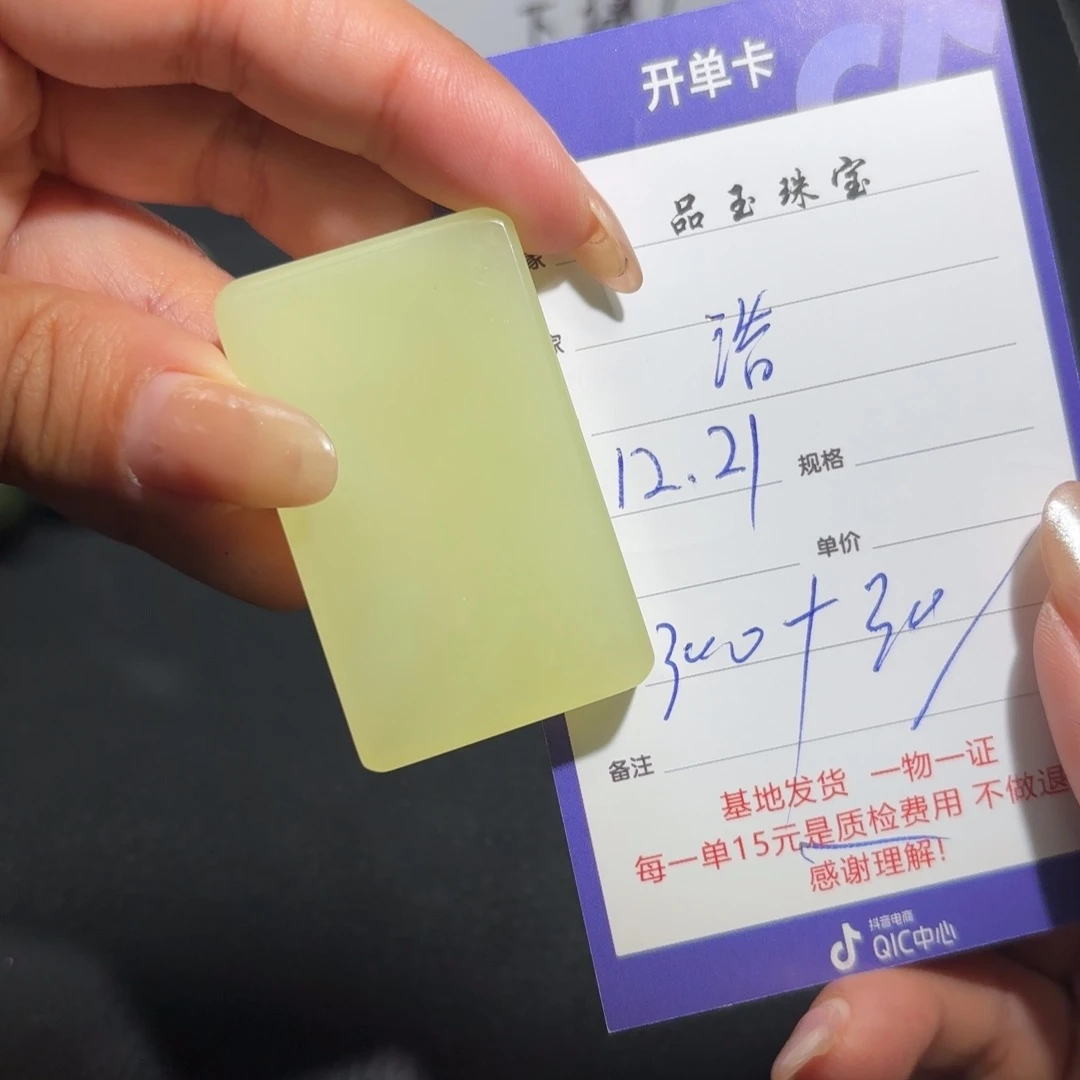 开单卡
品玉珠宝
家
家
浩
12.21 规格
单价
300+30/
备注
基地发货 一物一证
每一单15元是质检费用 不做退
感谢理解!
抖音电商
QIC中心